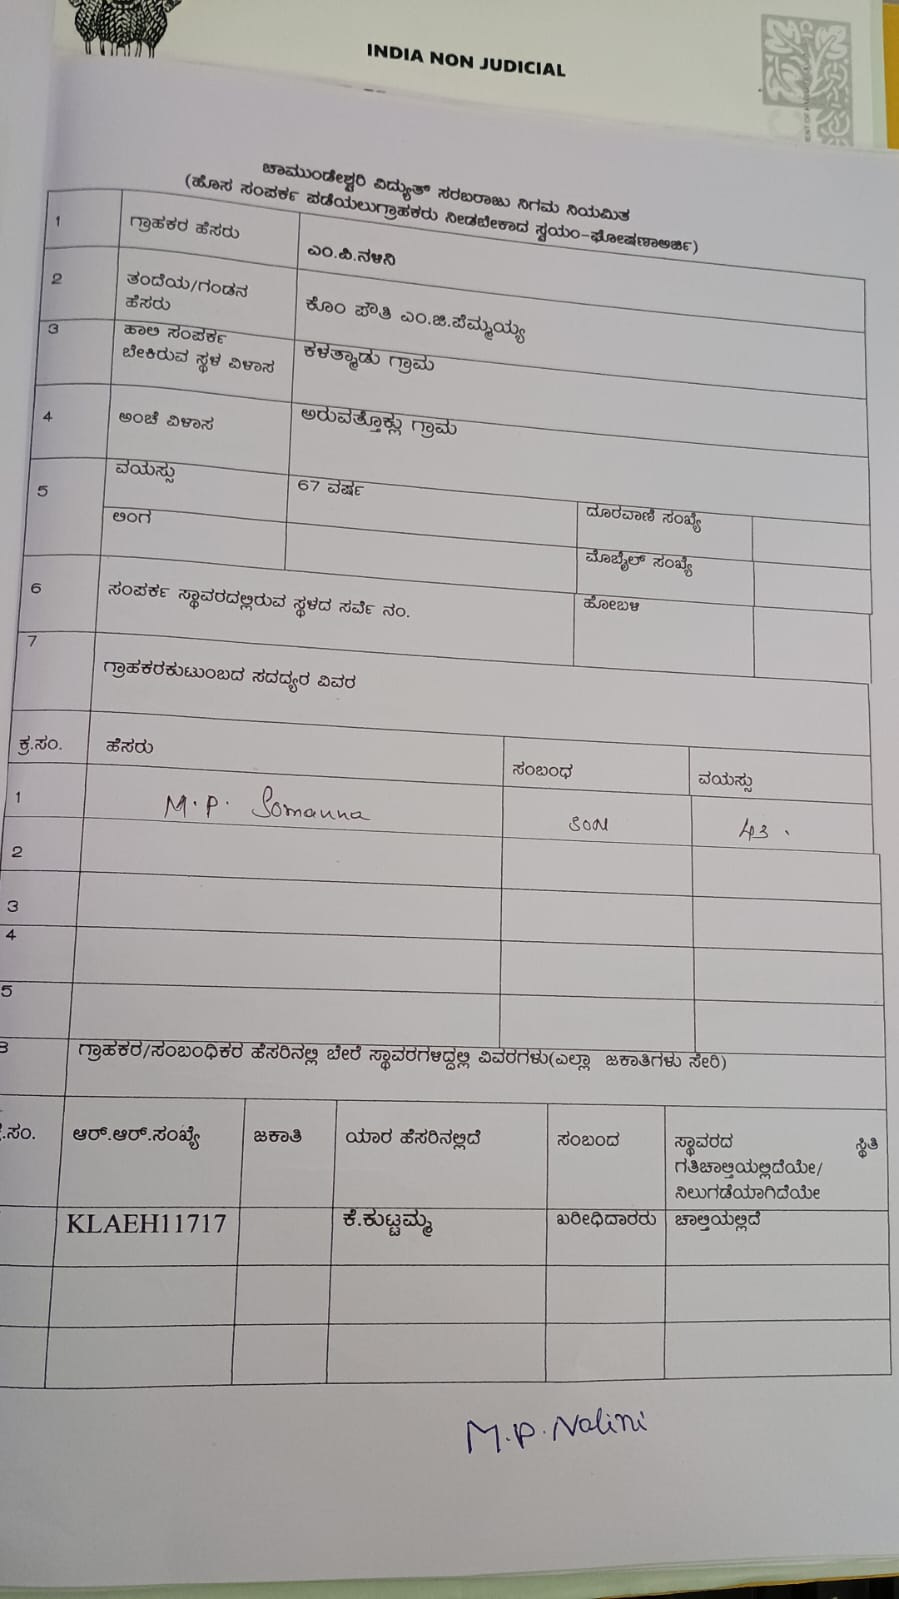 INDIA NON JUDICIAL
ಚಾಮುಂಡೇಶ್ವರಿ ವಿದ್ಯುತ್ ಸರಬರಾಜು ನಿಗಮ ನಿಯಮಿತ
(ಹೊಸ ಸಂಪರ್ಕ ಪಡೆಯಲುಗ್ರಾಹಕರು ನೀಡಬೇಕಾದ ಸ್ವಯಂ-ಘೋಷಣಾಅರ್ಜಿ)
1 ಗ್ರಾಹಕರ ಹೆಸರು ಎಂ.ಪಿ.ನಳಿನಿ
2 ತಂದೆಯ/ಗಂಡನ ಹೆಸರು ಕೊಂ ಪೌತಿ ಎಂ.ಜಿ.ಪೆಮ್ಮಯ್ಯ
3 ಹಾಲಿ ಸಂಪರ್ಕ ಬೇಕಿರುವ ಸ್ಥಳ ವಿಳಾಸ ಕಳತ್ಮಾಡು ಗ್ರಾಮ
4 ಅಂಚೆ ವಿಳಾಸ ಅರುವತ್ತೊಕ್ಲು ಗ್ರಾಮ
5 ವಯಸ್ಸು 67 ವರ್ಷ ದೂರವಾಣಿ ಸಂಖ್ಯೆ
ಲಿಂಗ ಮೊಬೈಲ್ ಸಂಖ್ಯೆ
6 ಸಂಪರ್ಕ ಸ್ಥಾವರದಲ್ಲಿರುವ ಸ್ಥಳದ ಸರ್ವೆ ನಂ. ಹೋಬಳಿ
7 ಗ್ರಾಹಕರಕುಟುಂಬದ ಸದದ್ಯರ ವಿವರ
ಕ್ರ.ಸಂ. ಹೆಸರು ಸಂಬಂಧ ವಯಸ್ಸು
1 M.P. Somanna SON 43.
2
3
4
5
ಗ್ರಾಹಕರ/ಸಂಬಂಧಿಕರ ಹೆಸರಿನಲ್ಲಿ ಬೇರೆ ಸ್ಥಾವರಗಳಿದ್ದಲ್ಲಿ ವಿವರಗಳು(ಎಲ್ಲಾ ಜಕಾತಿಗಳು ಸೇರಿ)
.ಸಂ. ಆರ್.ಆರ್.ಸಂಖ್ಯೆ ಜಕಾತಿ ಯಾರ ಹೆಸರಿನಲ್ಲಿದೆ ಸಂಬಂದ ಸ್ಥಾವರದ ಸ್ಥಿತಿ
ಗತಿಚಾಲ್ತಿಯಲ್ಲಿದೆಯೇ/
ನಿಲುಗಡೆಯಾಗಿದೆಯೇ
KLAEH11717 ಕೆ.ಕುಟ್ಟಮ್ಮ ಖರೀಧಿದಾರರು ಚಾಲ್ತಿಯಲ್ಲಿದೆ
M.P. Nalini